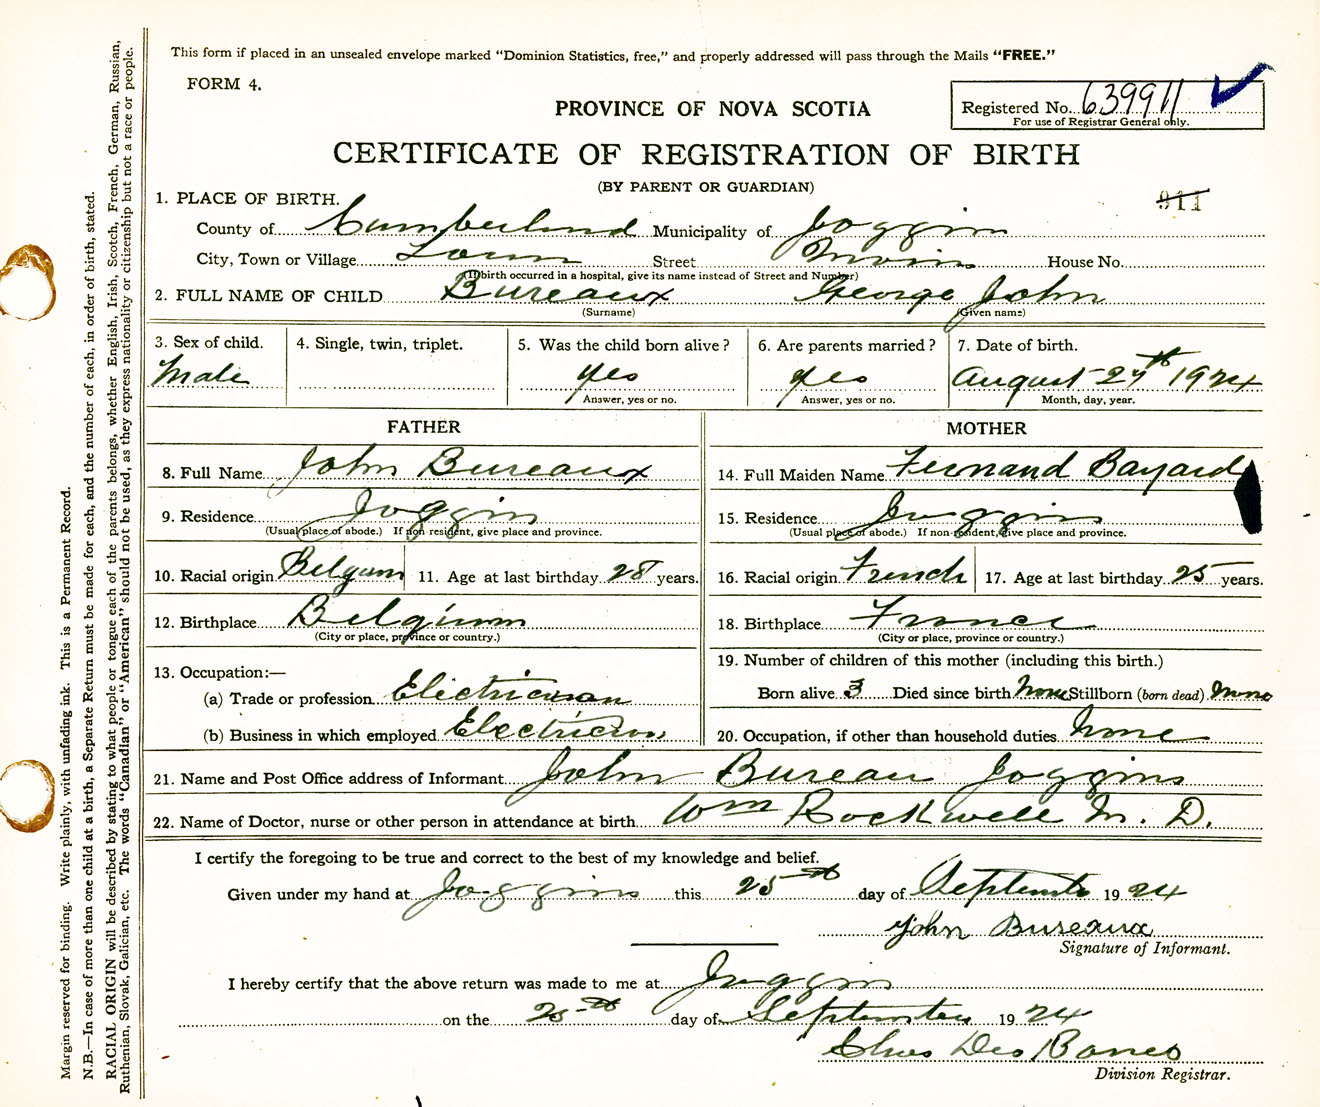 This form if placed in an unsealed envelope marked "Dominion Statistics, free," and properly addressed will pass through the Mails "FREE."
FORM 4.
PROVINCE OF NOVA SCOTIA
Registered No. 639911
For use of Registrar General only.
CERTIFICATE OF REGISTRATION OF BIRTH
(BY PARENT OR GUARDIAN)
911
1. PLACE OF BIRTH.
County of Cumberland Municipality of Joggins
City, Town or Village Town Street House No.
(If birth occurred in a hospital, give its name instead of Street and Number)
2. FULL NAME OF CHILD Bureaux George John
(Surname) (Given name)
3. Sex of child. 4. Single, twin, triplet. 5. Was the child born alive? 6. Are parents married? 7. Date of birth.
Male yes yes August 27th 1924
Answer, yes or no. Answer, yes or no. Month, day, year.
FATHER
8. Full Name John Bureaux
9. Residence Joggins
(Usual place of abode.) If non-resident, give place and province.
10. Racial origin Belgium 11. Age at last birthday 28 years.
12. Birthplace Belgium
(City or place, province or country.)
13. Occupation:—
(a) Trade or profession Electrician
(b) Business in which employed Electrician
MOTHER
14. Full Maiden Name Fernand Bayard
15. Residence Joggins
(Usual place of abode.) If non-resident, give place and province.
16. Racial origin French 17. Age at last birthday 25 years.
18. Birthplace France
(City or place, province or country.)
19. Number of children of this mother (including this birth.)
Born alive 3 Died since birth None Stillborn (born dead) None
20. Occupation, if other than household duties None
21. Name and Post Office address of Informant John Bureau Joggins
22. Name of Doctor, nurse or other person in attendance at birth Wm Rockwell M. D.
I certify the foregoing to be true and correct to the best of my knowledge and belief.
Given under my hand at Joggins this 25th day of September 1924
John Bureaux
Signature of Informant.
I hereby certify that the above return was made to me at Joggins
on the 25th day of September 1924
Chas Des Barres
Division Registrar.
Margin reserved for binding. Write plainly, with unfading ink. This is a Permanent Record.
N.B.—In case of more than one child at a birth, a Separate Return must be made for each, and the number of each, in order of birth, stated.
RACIAL ORIGIN will be described by stating to what people or tongue each of the parents belongs, whether English, Irish, Scotch, French, German, Russian,
Ruthenian, Slovak, Galician, etc. The words "Canadian" or "American" should not be used, as they express nationality or citizenship but not a race or people.